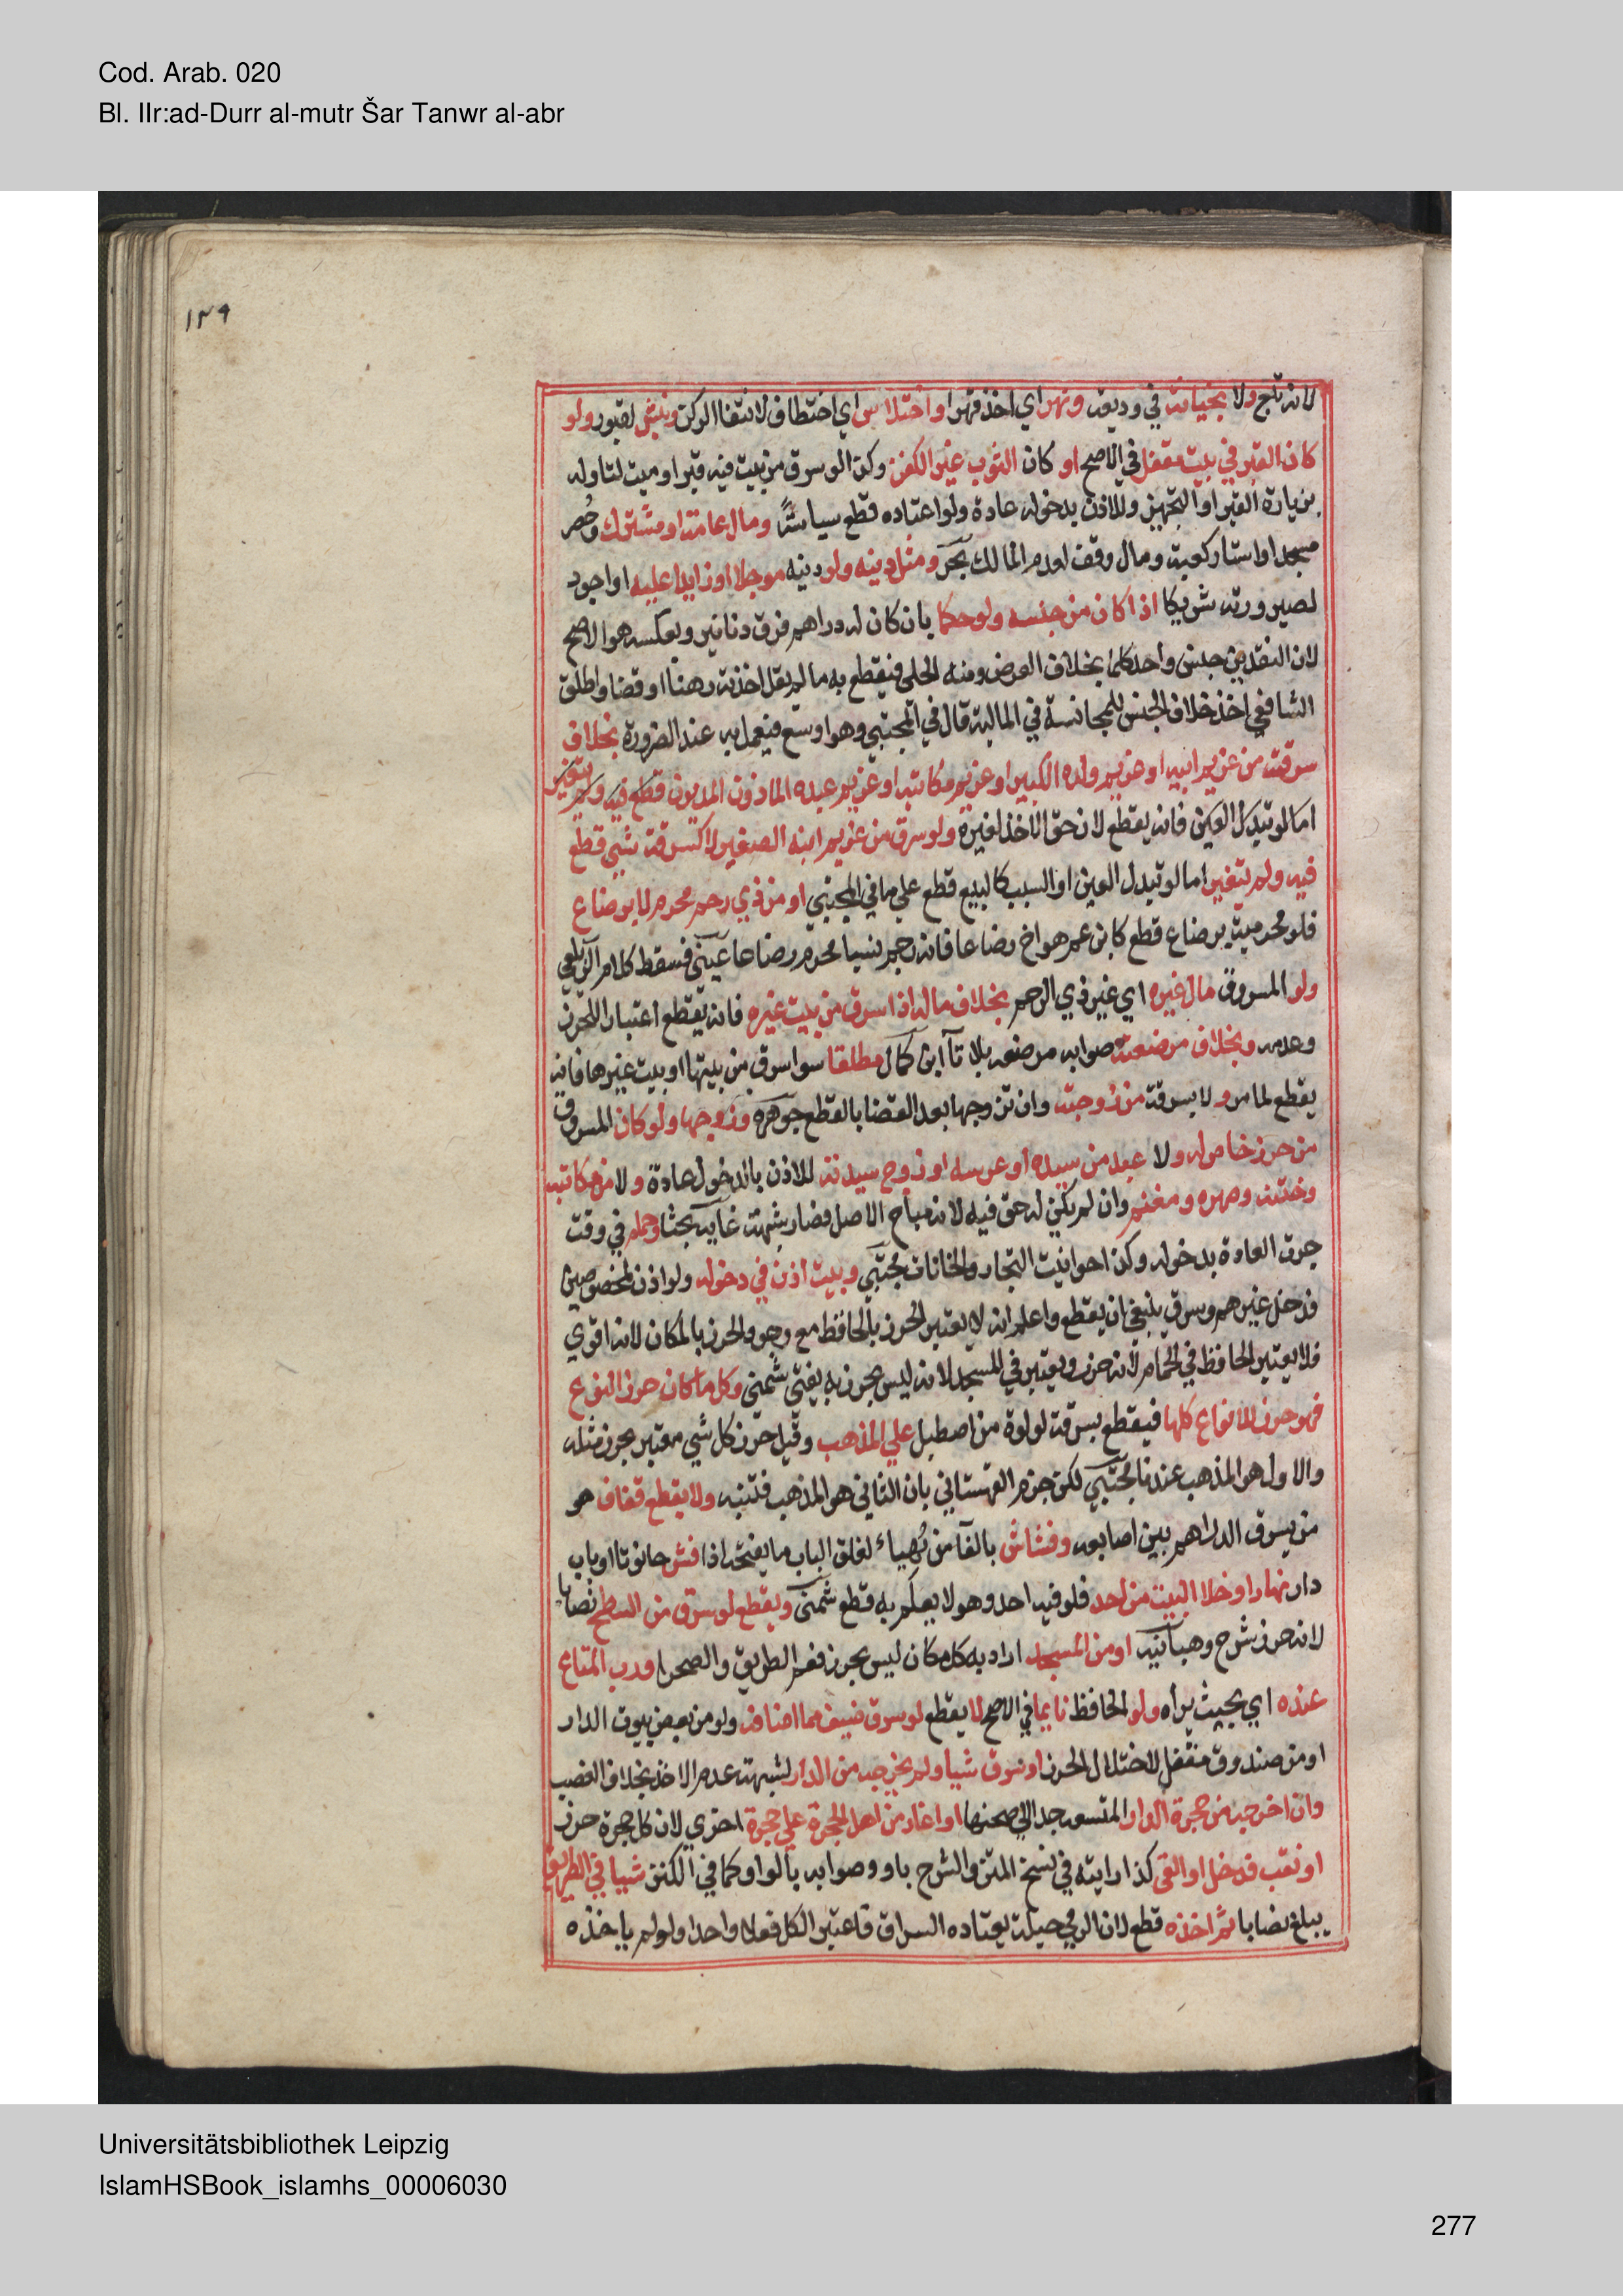 Cod. Arab. 020
Bl. IIr:ad-Durr al-mutr Šar Tanwr al-abr
١٣٩
لانه تلج ولا بخيانة في وديعة ونهب اي اخذ قهرا واختلاس اي اختطاف لانتفا الركن ونبش لقبور ولو
كان القبر في بيت مقفل في الاصح او كان الثوب غير الكفن وكذا لو سرق من بيت فيه قبر او ميت لتاوله
بزيارة القبر او التجهيز وللاذن بدخوله عادة ولو اعتاده قطع سياسة ومال عامة او مشترك وحصر
مسجد او استار كعبة ومال وقف لعدم المالك بحر ومثل دينه ولو دينه موجلا او زايدا عليه او اجود
لصيرورته شريكا اذا كان من جنسه ولو حكما بان كان له دراهم فسرق دنانير وبعكسه هو الاصح
لان النقدين جنس واحد حكما بخلاف العرض ومنه الحلى فيقطع به ما لم يقل اخذته رهنا او قضا واطلق
الشافعي اخذ خلاف الجنس للمجانسة في المالية قال في المجتبى وهو اوسع فيعمل به عند الضرورة بخلاف
سرقته من غريم ابيه او غريم ولده الكبير او غريم مكاتبه او غريم عبده الماذون المديون قطع فيه ولم يتغير
اما لو تبدل العين فانه يقطع لان حق الاخذ لغيره ولو سرق من غريم ابنه الصغير لا كسرقة شي قطع
فيه ولم تتغير اما لو تبدل العين او السبب كالبيع قطع على ما في المجتبى او من ذي رحم محرم لا برضاع
فلو محرميته برضاع قطع كابن عم هو اخ رضاعا فانه رحم نسبا محرم رضاعا عيني فسقط كلام الزيلعي
ولو المسروق مال غيره اي غير ذي الرحم بخلاف ماله اذا سرق من بيت غيره فانه يقطع اعتبارا للحرز
وعدمه وبخلاف مرضعته صوابه مرضعه بلا تا ابن كمال مطلقا سوا سرق من بيتها او بيت غيرها فانه
يقطع لما مر ولا بسرقة من زوجته وان تزوجها بعد القضا بالقطع جوهره وزوجها ولو كان المسروق
من حرز خاص له ولا عبد من سيده او عرسه او زوج سيدته للاذن بالدخول عادة ولا من مكاتبه
وختنه وصهره ومغنم وان لم يكن له حق فيه لانه مباح الاصل فصار شبهة غاية بحثا وحمام في وقت
جرت العادة بدخوله وكذا حوانيت التجار والخانات مجتبى وبيت اذن في دخوله ولو اذن لمخصوصين
فدخل غيرهم وسرق ينبغي ان يقطع واعلم انه لا يعتبر الحرز بالحافظ مع وجود الحرز بالمكان لانه اقوى
فلا يعتبر الحافظ في الحمام لانه حرز ويعتبر في المسجد لانه ليس بحرز به يفتى شمنى وكل ما كان حرز النوع
فهو حرز للانواع كلها فيقطع بسرقة لولوة من اصطبل على المذهب وقيل حرز كل شي معتبر بحرز مثله
والاول هو المذهب عندنا مجتبى لكن جزم القهستاني بان الثاني هو المذهب فتنبه ولا يقطع قفاف هو
من يسرق الدراهم بين اصابعه وفشاش بالفا من يهياء لغلق الباب ما يفتحه اذا فش حانوتا او باب
دار نهارا وخلا البيت من احد فلو فيه احد وهو لا يعلم به قطع شمنى ويقطع لو سرق من السطح نصابا
لانه حرز شرح وهبانيه او من المسجد اراد به كل مكان ليس بحرز فعم الطريق والصحرا ورب المتاع
عنده اي بحيث يراه ولو الحافظ نايما في الاصح لا يقطع لو سرق ضيف مما اضافه ولو من بعض بيوت الدار
او من صندوق مقفل لاختلال الحرز او سرق شيا ولم يخرجه من الدار لشبهة عدم الاخذ بخلاف الغصب
وان اخرجه من حجرة الدار المتسعه جدا الى صحنها او اغار من اهل الحجرة على حجرة اخرى لان كل حجرة حرز
او نقب فدخل او القى كذا رايته في نسخ المتن والشرح باو وصوابه بالواو كما في الكنز شيا في الطريق
يبلغ نصابا ثم اخذه قطع لان الرمي حيلة يعتاده السراق فاعتبر الكل فعلا واحدا ولو لم ياخذه
Universitätsbibliothek Leipzig
IslamHSBook_islamhs_00006030
277